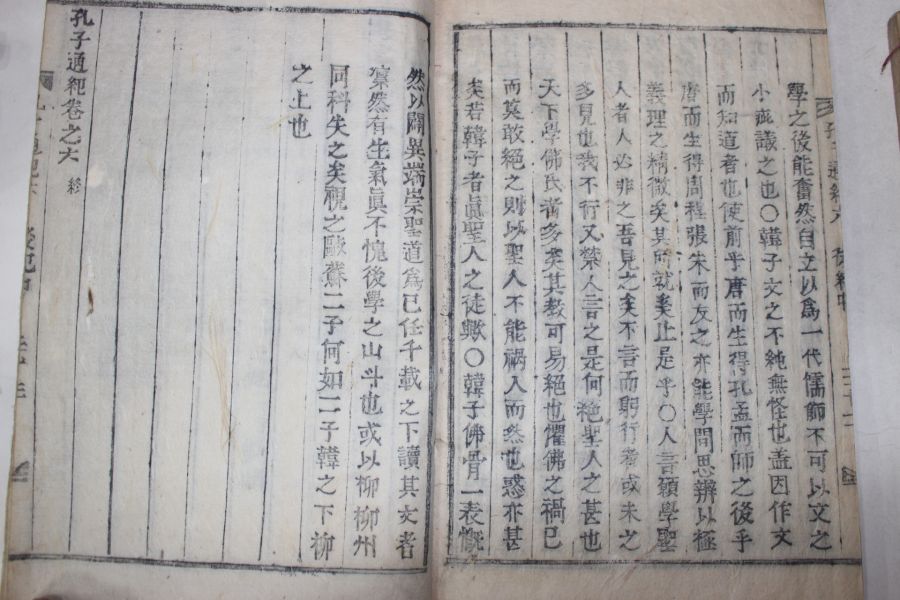 學之後能奮然自立以爲一代儒師不可以文之
小疵議之也○韓子文之不純無怪也盖因作文
而知道者也使前乎唐而生得孔孟而師之後乎
唐而生得周程張朱而友之亦能學問思辨以極
義理之精微矣其所就奚止是乎○人言願學聖
人者人必非之吾見之矣不言而躬行者或未之
多見也我不行又禁人言之是何絶聖人之甚也
天下學佛氏者多矣其教可易絶也懼佛之禍已
而莫敢絶之則以聖人不能禍人而然也惑亦甚
矣若韓子者眞聖人之徒歟○韓子佛骨一表慨
然以闢異端崇聖道爲已任千載之下讀其文者
凜然有生氣眞不愧後學之山斗也或以柳柳州
同科失之矣視之歐蘇二子何如二子韓之下柳
之上也
孔子通紀卷之六 終